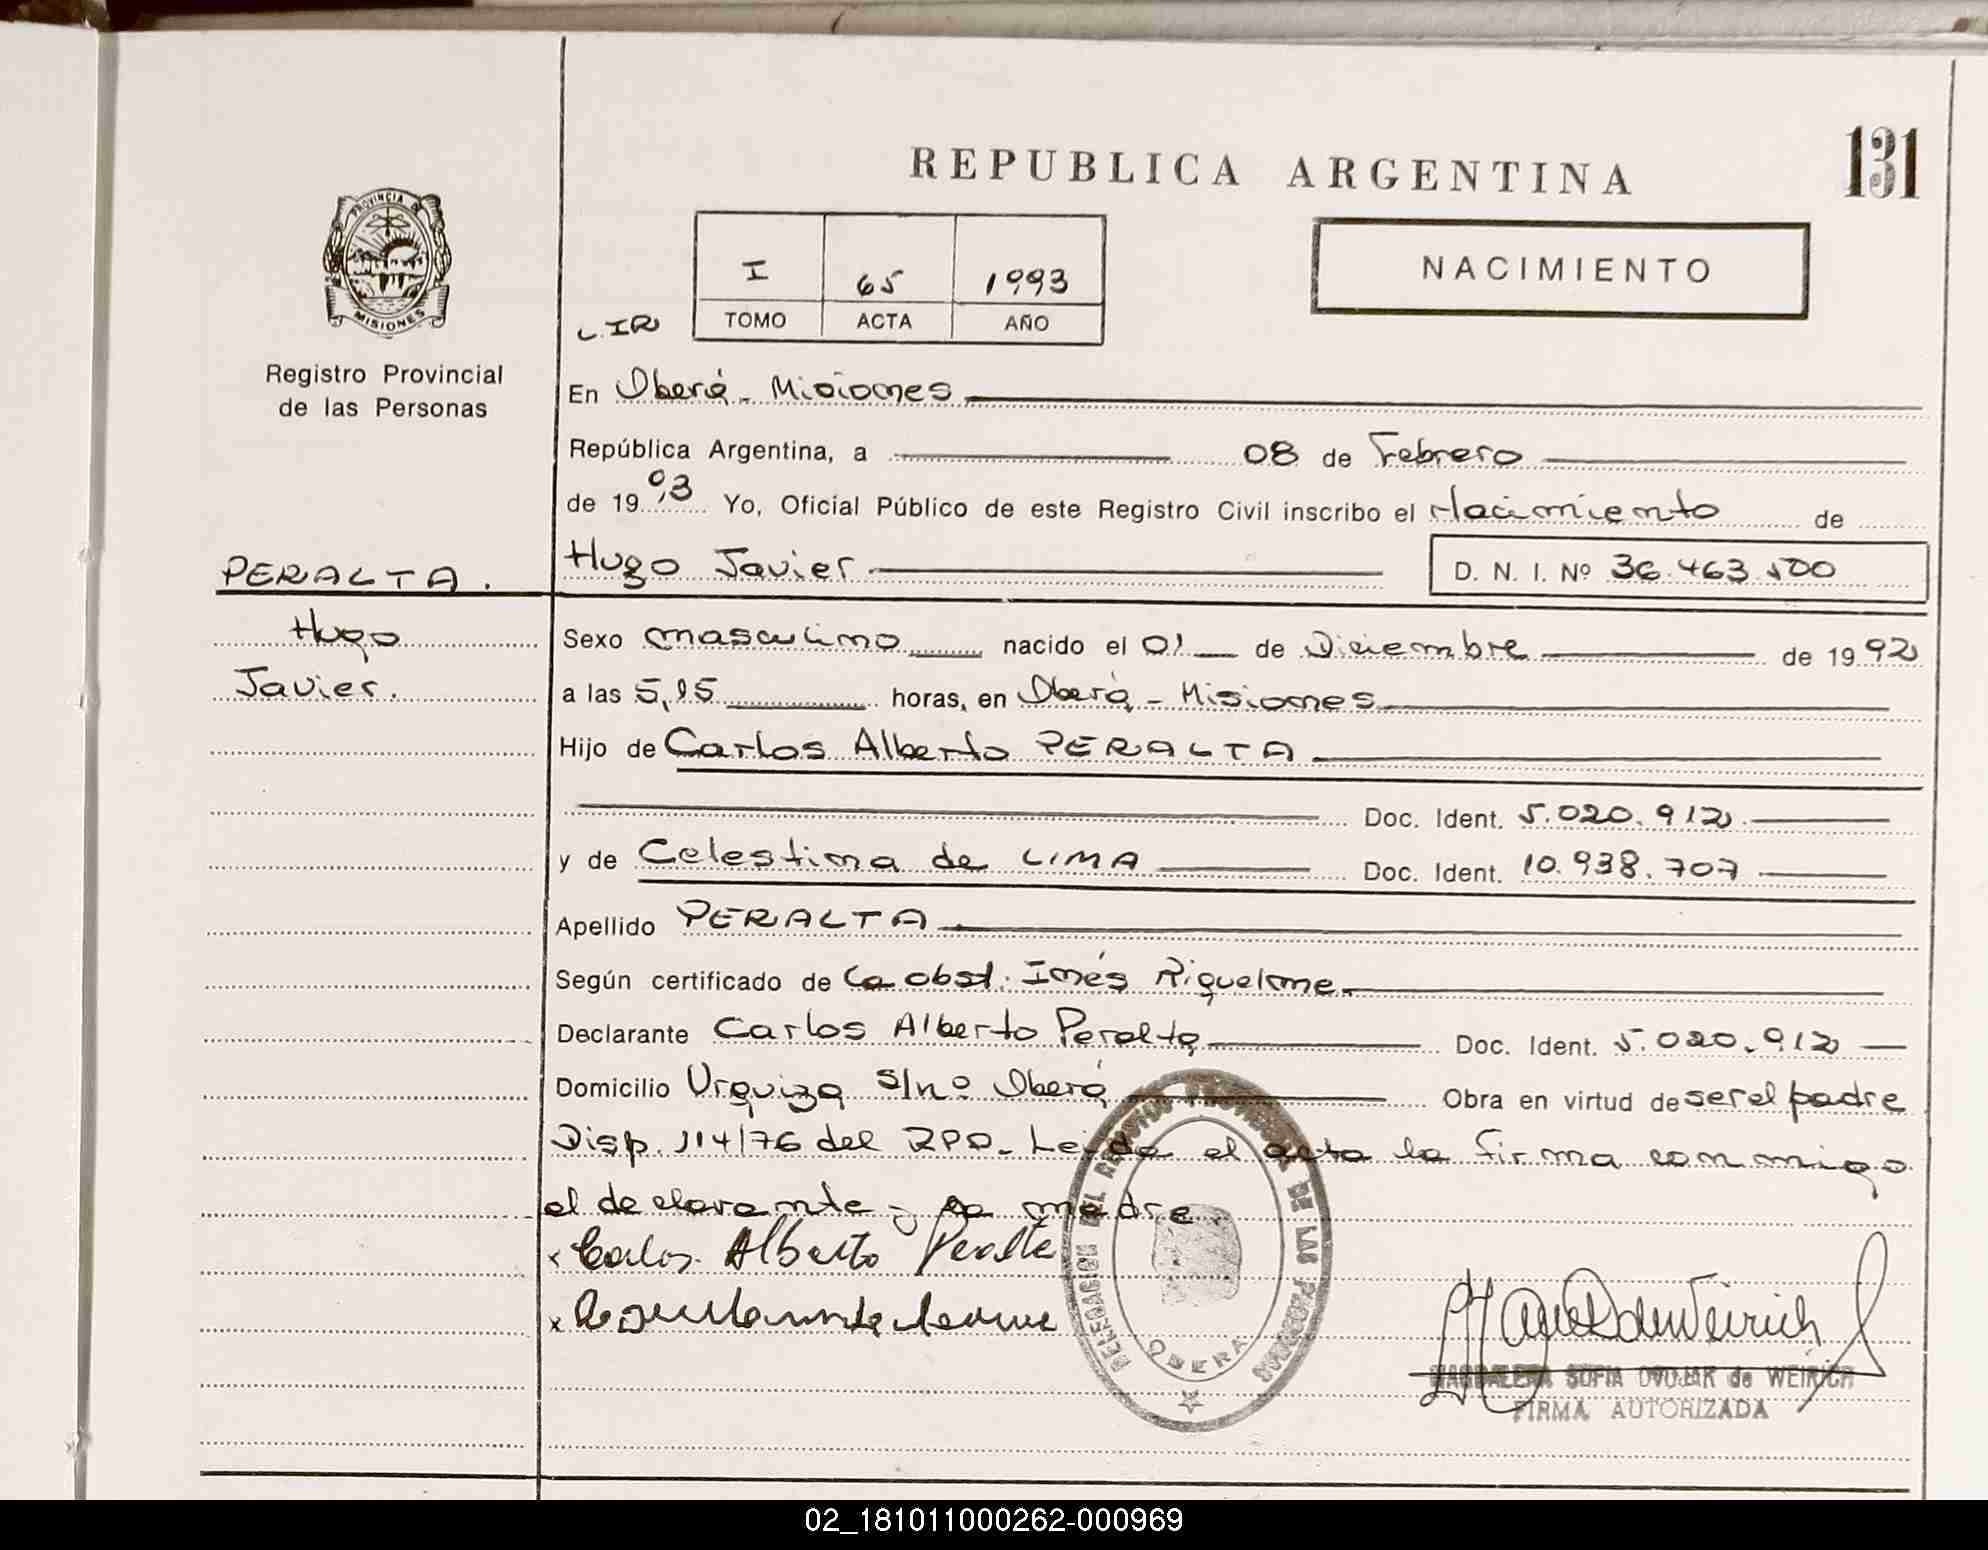 REPUBLICA ARGENTINA
131
PROVINCIA DE
MISIONES
Registro Provincial
de las Personas
I 65 1993
TOMO ACTA AÑO
NACIMIENTO
En Oberá - Misiones
República Argentina, a 08 de Febrero
de 1993 Yo, Oficial Público de este Registro Civil inscribo el Nacimiento de
PERALTA.
Hugo Javier D. N. I. Nº 36.463.500
Hugo
Javier.
Sexo masculino nacido el 01 de Diciembre de 1992
a las 5,15 horas, en Oberá - Misiones
Hijo de Carlos Alberto PERALTA
Doc. Ident. 5.020.912
y de Celestina de LIMA Doc. Ident. 10.938.707
Apellido PERALTA
Según certificado de la obst. Inés Riquelme
Declarante Carlos Alberto Peralta Doc. Ident. 5.020.912
Domicilio Urquiza s/nº Oberá Obra en virtud de ser el padre
Disp. 114/76 del RPP - Leida el acta la firma conmigo
el declarante y la madre.
x Carlos Alberto Peralta
x
DELEGACION DEL REGISTRO PROVINCIAL DE LAS PERSONAS
OBERA
MAGDALENA SOFIA DVOJAK de WEIRICH
FIRMA AUTORIZADA
02_181011000262-000969